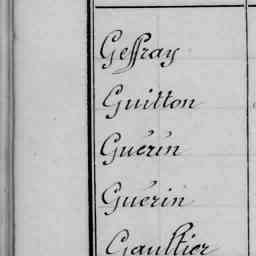 Geffray
Guitton
Guérin
Guérin
Gaultier